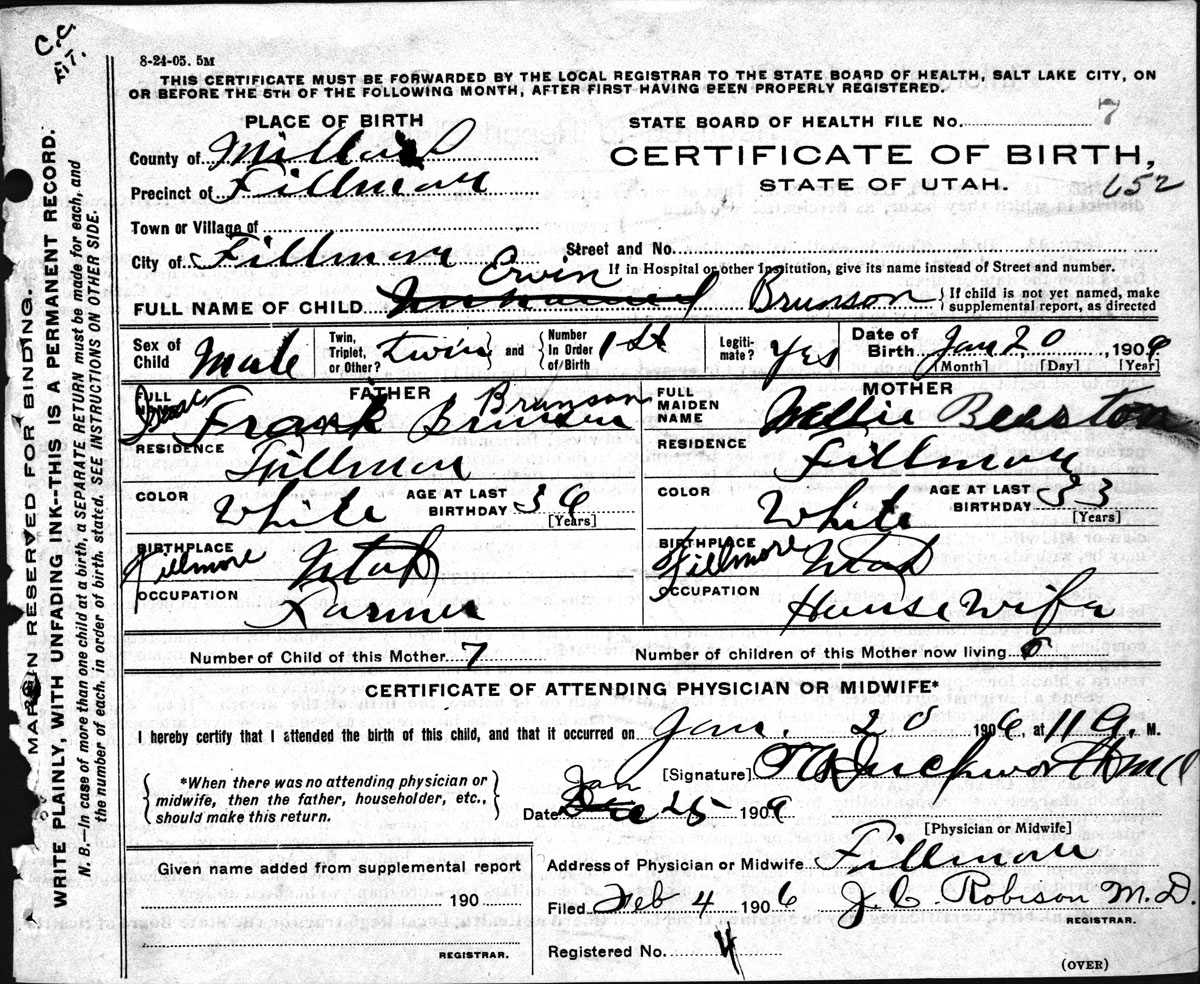 C.C.
F.T.
8-24-05. 5M
THIS CERTIFICATE MUST BE FORWARDED BY THE LOCAL REGISTRAR TO THE STATE BOARD OF HEALTH, SALT LAKE CITY, ON
OR BEFORE THE 5TH OF THE FOLLOWING MONTH, AFTER FIRST HAVING BEEN PROPERLY REGISTERED.
PLACE OF BIRTH
STATE BOARD OF HEALTH FILE No. 7
County of Millard
CERTIFICATE OF BIRTH,
Precinct of Fillmore
STATE OF UTAH. 652
Town or Village of
City of Fillmore Street and No.
If in Hospital or other Institution, give its name instead of Street and number.
Ervin
FULL NAME OF CHILD Unnamed Brunson { If child is not yet named, make
supplemental report, as directed
Sex of Child Male Twin, Triplet, or Other? twin and Number In Order of Birth 1st Legiti-mate? Yes Date of Birth Jan 20, 1906
[Month] [Day] [Year]
FATHER MOTHER
FULL NAME Frank Brunson Brunson FULL MAIDEN NAME Nellie Beeston
RESIDENCE Fillmore RESIDENCE Fillmore
COLOR White AGE AT LAST BIRTHDAY 36 [Years] COLOR White AGE AT LAST BIRTHDAY 33 [Years]
BIRTHPLACE Fillmore Utah BIRTHPLACE Fillmore Utah
OCCUPATION Farmer OCCUPATION House Wife
Number of Child of this Mother 7 Number of children of this Mother now living
CERTIFICATE OF ATTENDING PHYSICIAN OR MIDWIFE*
I hereby certify that I attended the birth of this child, and that it occurred on Jan. 20 1906, at 11 a. M.
[Signature]
*When there was no attending physician or
midwife, then the father, householder, etc.,
should make this return.
Date Jan 25 1906
[Physician or Midwife]
Given name added from supplemental report
Address of Physician or Midwife Fillmore
190
Filed Feb 4 1906 J. C. Robison M.D.
REGISTRAR.
REGISTRAR.
Registered No. 4
(OVER)
MARGIN RESERVED FOR BINDING.
WRITE PLAINLY, WITH UNFADING INK--THIS IS A PERMANENT RECORD.
N. B.—In case of more than one child at a birth, a SEPARATE RETURN must be made for each, and
the number of each, in order of birth. stated. SEE INSTRUCTIONS ON OTHER SIDE.